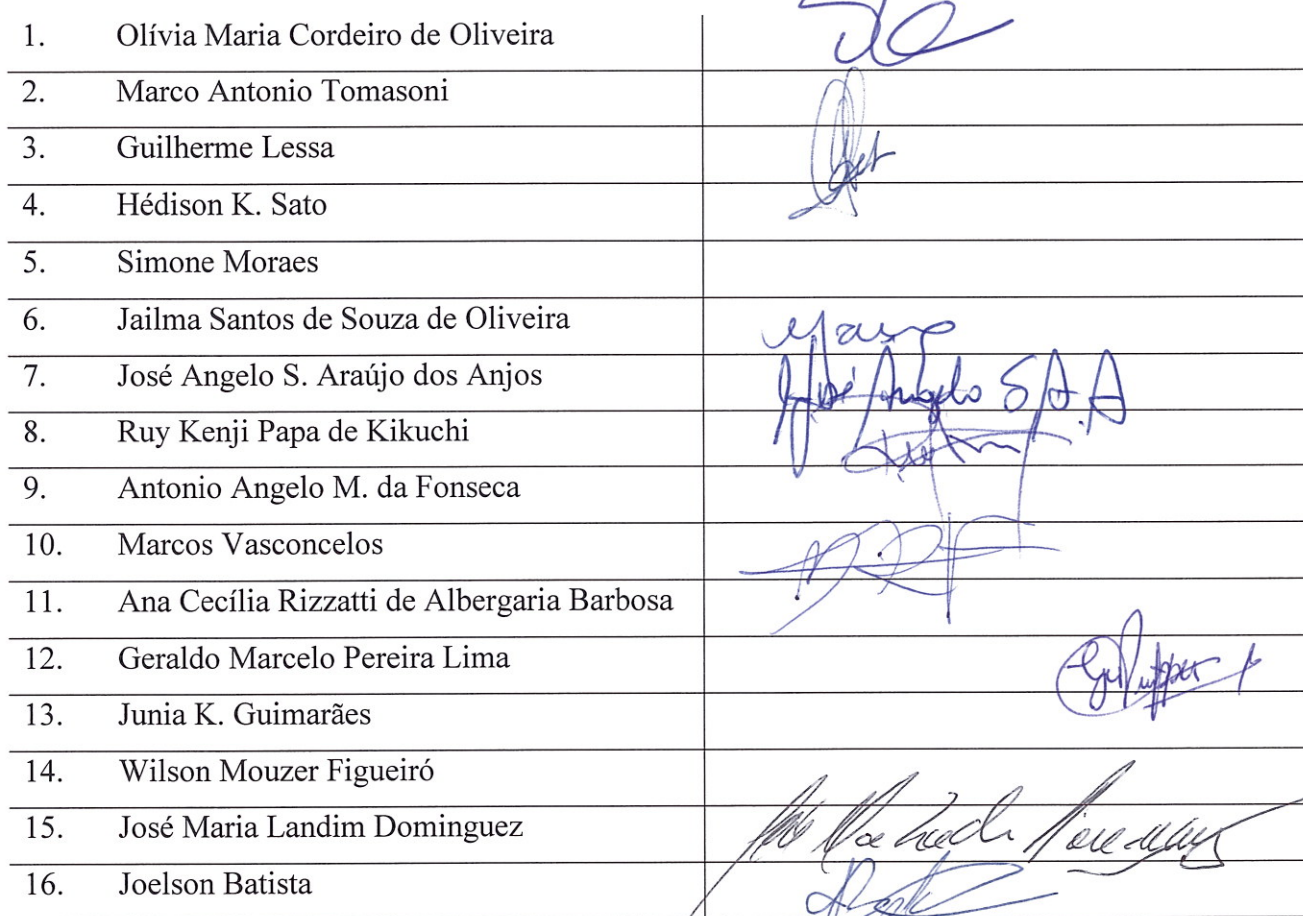 1. Olívia Maria Cordeiro de Oliveira
2. Marco Antonio Tomasoni
3. Guilherme Lessa
4. Hédison K. Sato
5. Simone Moraes
6. Jailma Santos de Souza de Oliveira
7. José Angelo S. Araújo dos Anjos José Angelo S.A.A
8. Ruy Kenji Papa de Kikuchi
9. Antonio Angelo M. da Fonseca
10. Marcos Vasconcelos
11. Ana Cecília Rizzatti de Albergaria Barbosa
12. Geraldo Marcelo Pereira Lima
13. Junia K. Guimarães
14. Wilson Mouzer Figueiró
15. José Maria Landim Dominguez
16. Joelson Batista